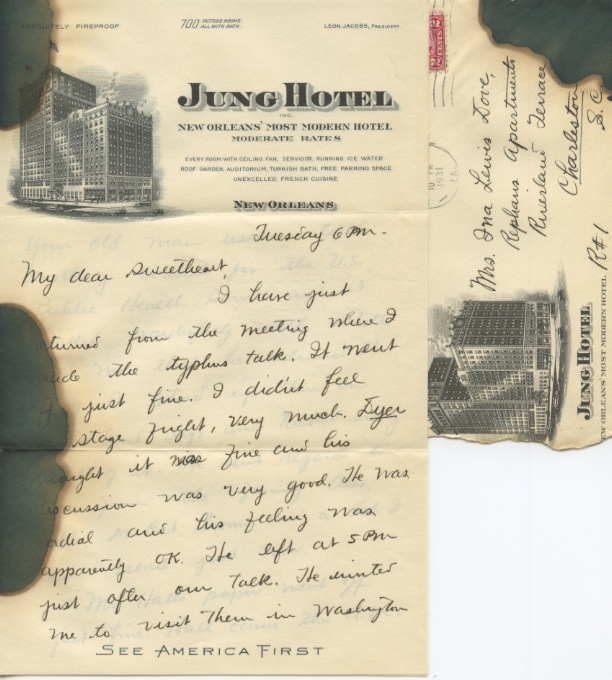 ABSOLUTELY FIREPROOF
700 OUTSIDE ROOMS
ALL WITH BATH.
LEON JACOBS, PRESIDENT.
JUNG HOTEL
INC.
NEW ORLEANS' MOST MODERN HOTEL
MODERATE RATES
EVERY ROOM WITH CEILING FAN, SERVIDOR, RUNNING ICE WATER
ROOF GARDEN, AUDITORIUM, TURKISH BATH, FREE PARKING SPACE
UNEXCELLED FRENCH CUISINE
NEW ORLEANS
Tuesday 6 PM.
My dear Sweetheart,
I have just
turned from the meeting where I
ade the typhus talk. It went
just fine. I didn't feel
stage fright, very much. Dyer
ought it was fine and his
scussion was very good. He was
rdial and his feeling was
apparently OK. He left at 5 PM
just after our talk. He invited
me to visit them in Washington
SEE AMERICA FIRST
2 CENTS 2
1931
Mrs. Ina Lewis Dove,
Rephans Apartments
Riverland Terrace
Charleston
S. C.
R#1
JUNG HOTEL
NEW ORLEANS' MOST MODERN HOTEL